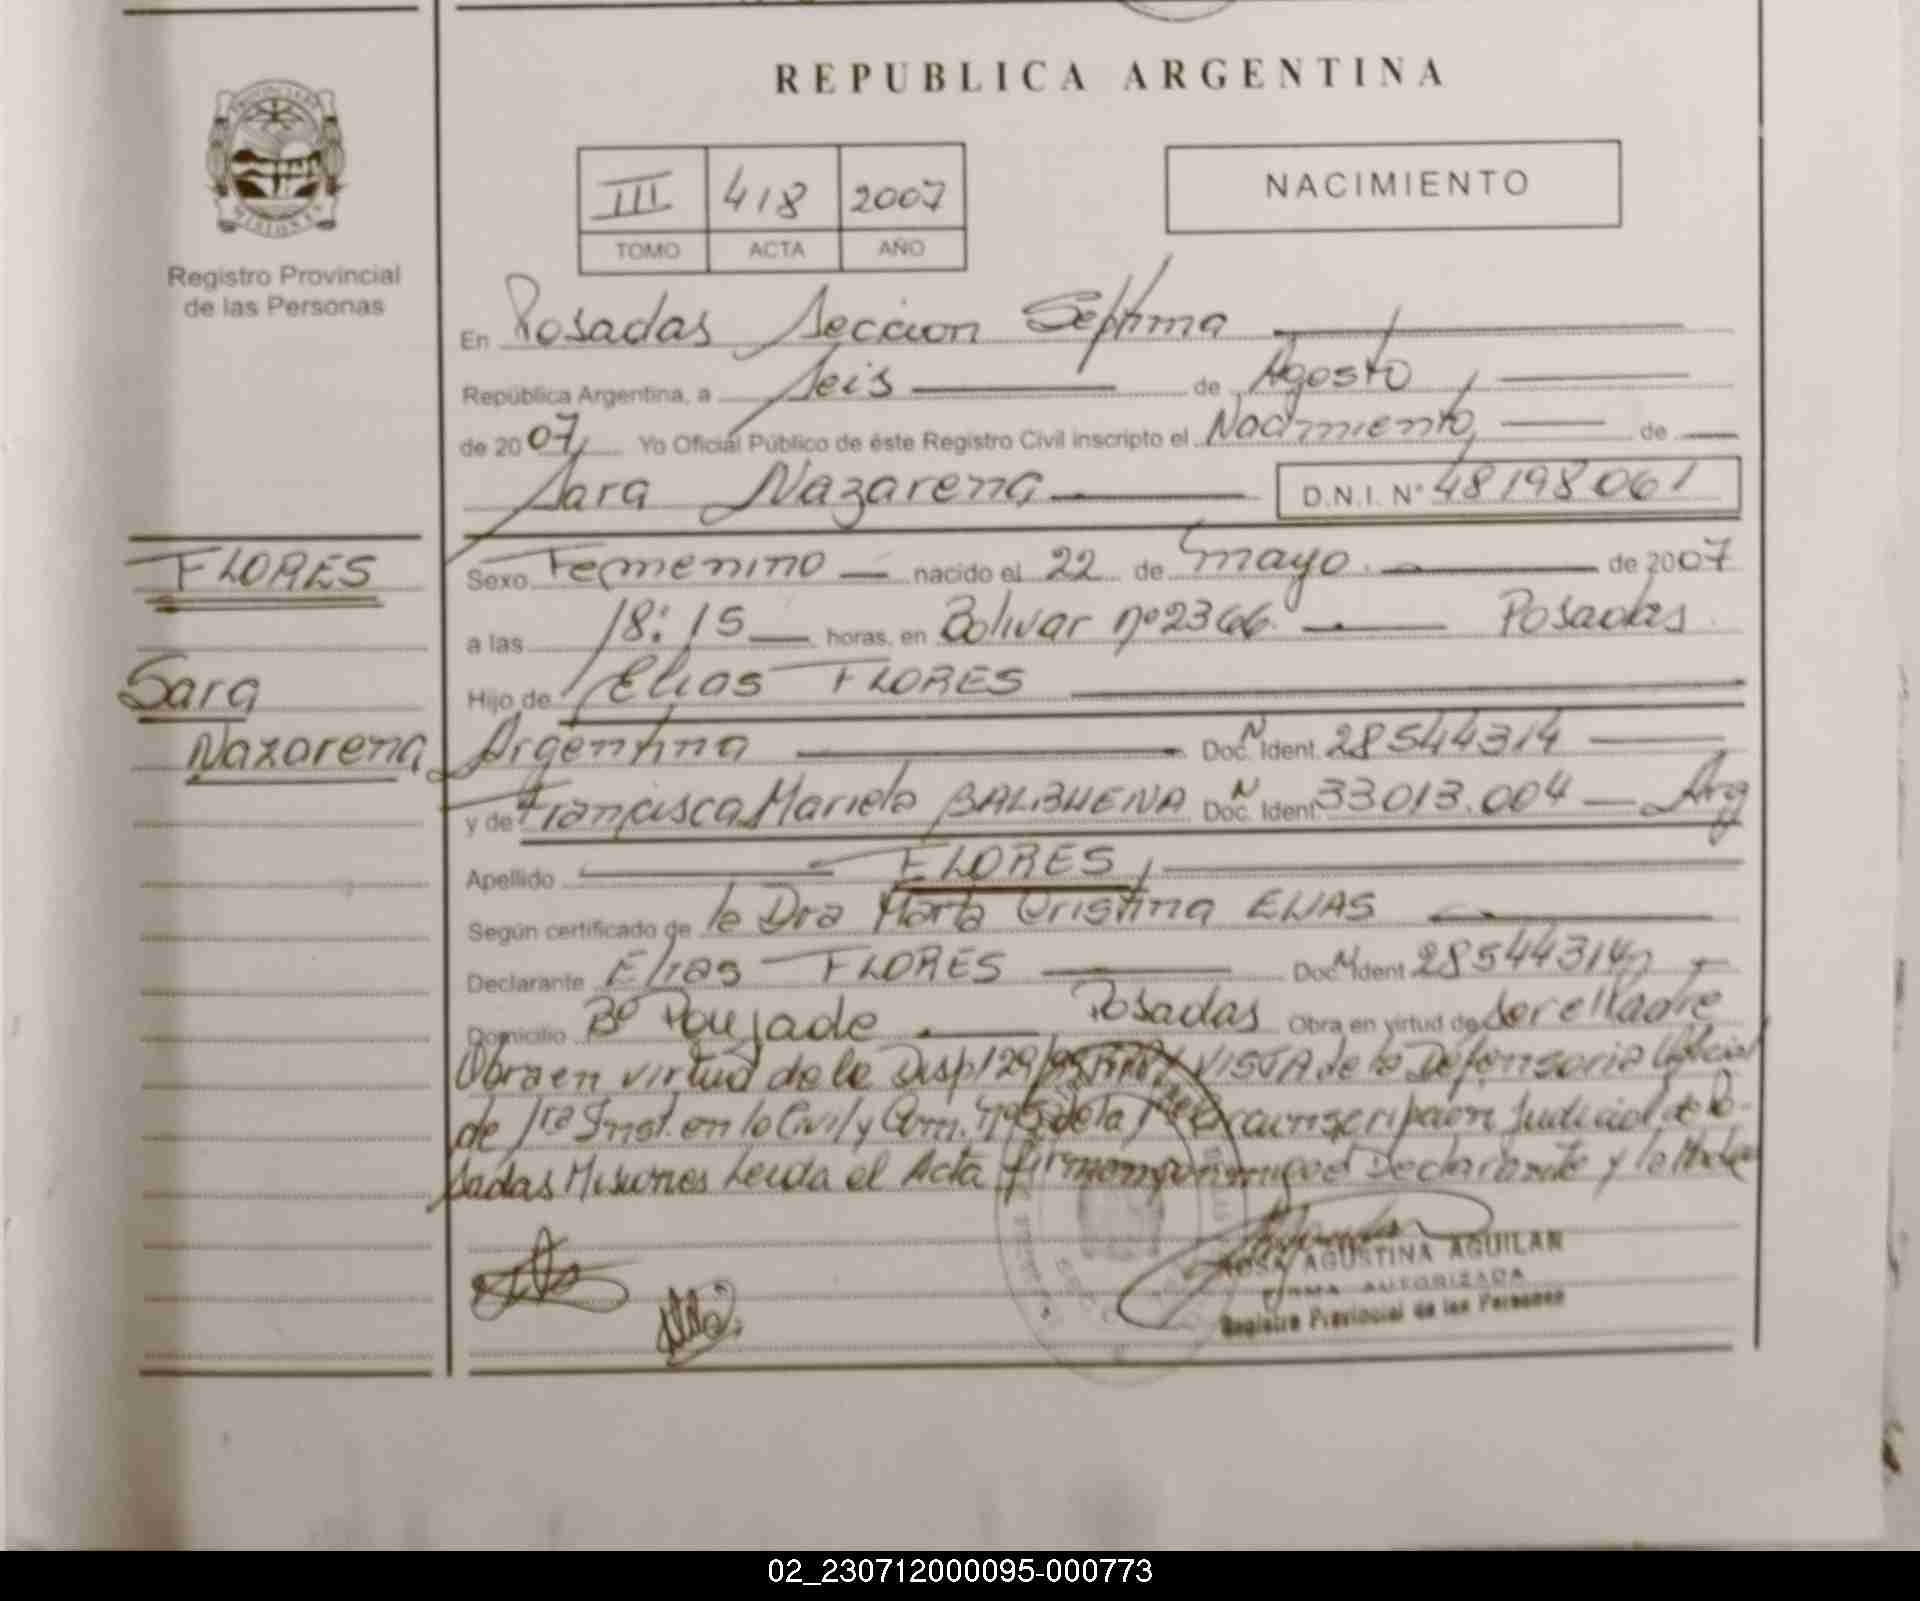 REPUBLICA ARGENTINA
PROVINCIA DE
MISIONES
Registro Provincial
de las Personas
III 418 2007
TOMO ACTA AÑO
NACIMIENTO
En Posadas Seccion Septima
República Argentina, a Seis de Agosto
de 2007, Yo Oficial Público de éste Registro Civil inscripto el Nacimiento, de
Sara Nazarena D.N.I. N° 48198061
FLORES
Sara
Nazarena
Sexo Femenino nacido el 22 de mayo de 2007
a las 18:15 horas, en Bolivar nº 2366 Posadas
Hijo de Elias FLORES
Argentina Doc. N Ident. 28544314
y de Francisca Mariela BALBUENA Doc. N Ident. 33013.004 Arg
Apellido FLORES,
Según certificado de la Dra Marta Cristina ELIAS
Declarante Elias FLORES Doc. N Ident 28544314
Domicilio Bº Poujade Posadas Obra en virtud de ser el Padre
Obra en virtud de la Disp 129/95 VISTA de la Defensoria Oficial
de 1ra Inst. en lo Civil y Com. de la Circunscripcion Judicial de Po-
sadas Misiones Leida el Acta firman por mi el Declarante y la Madre
ROSA AGUSTINA AGUILAR
FIRMA AUTORIZADA
Registro Provincial de las Personas
02_230712000095-000773